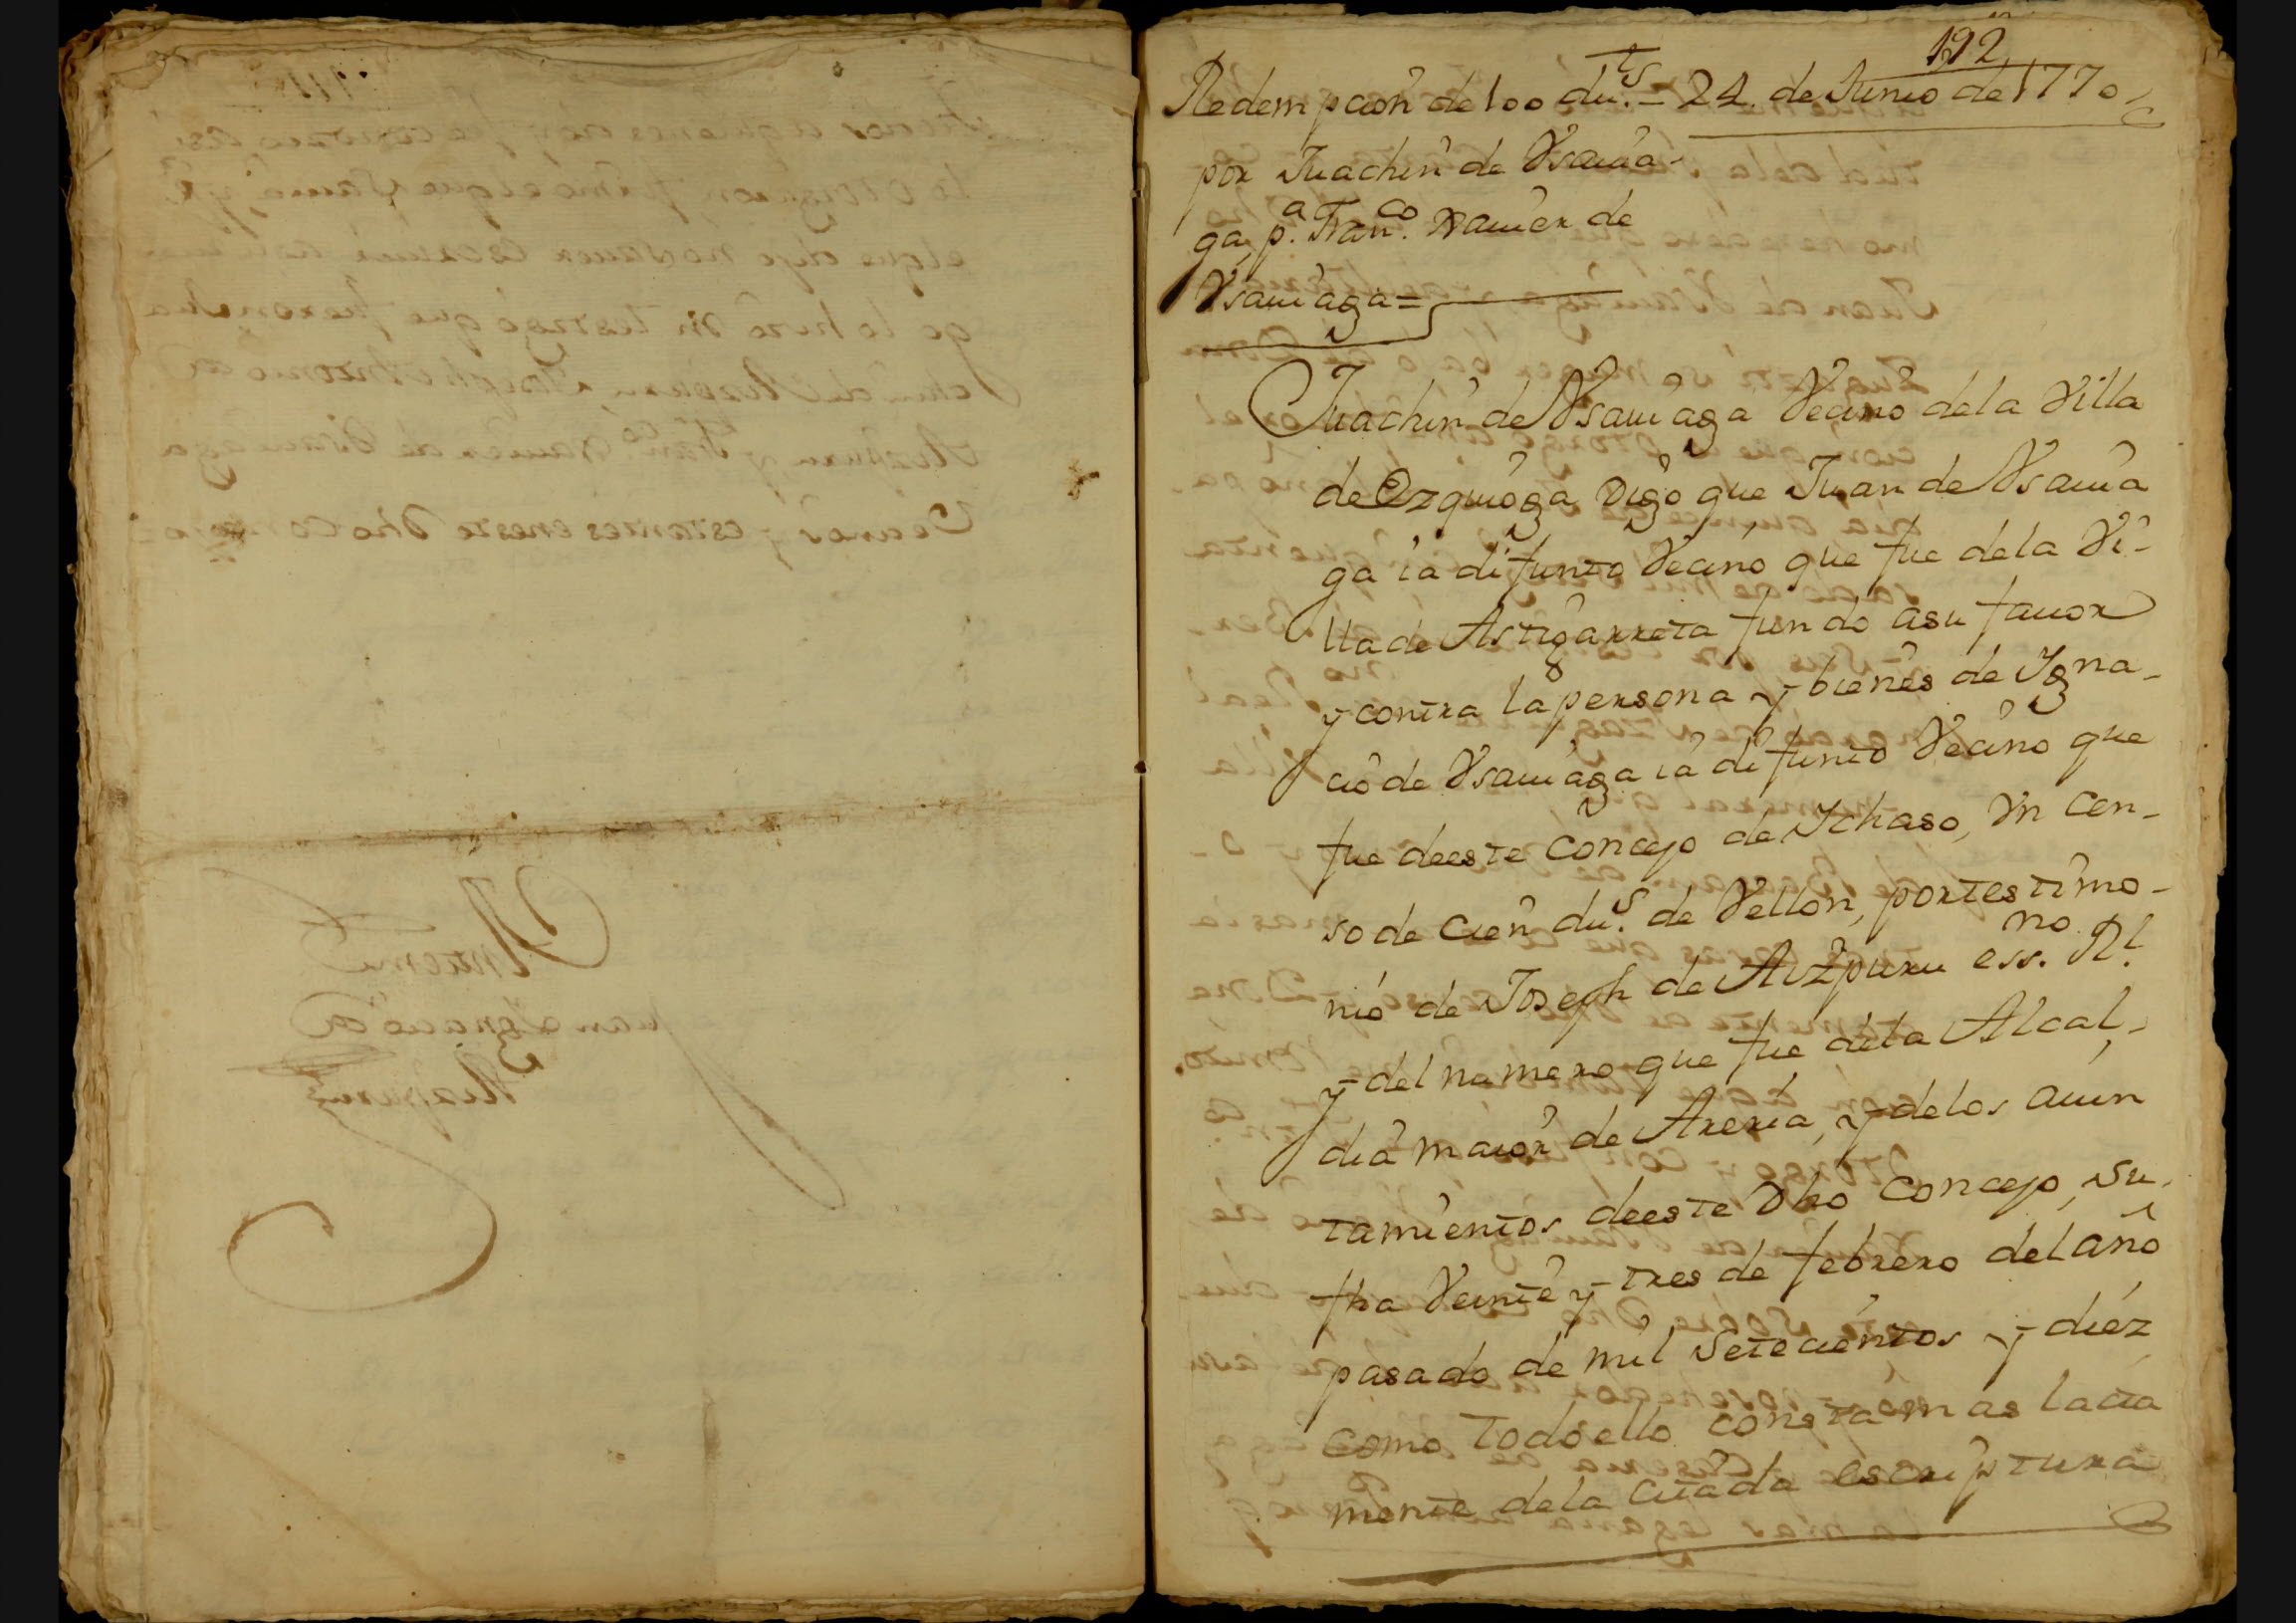 192
Redempcion de 100 du.ts = 24 de Junio de 1770
por Juachin de Vsauia-
ga, p.a Fran.co Xauier de
Vsauiaga =
Juachin de Vsauiaga Vecino dela Villa
de Ezquioga Digo que Juan de Vsauia
ga ia difunto Vecino que fue dela Vi-
lla de Astigarreta fundo asu fauor
y contra la persona y bienes de Igna-
cio de Vsauiaga ia difunto Vecino que
fue deeste Concejo de Ichaso, Vn Cen-
so de Cien du.s de Vellon, por testimo-
nio de Joseph de Aizpuru ess.no Rl.
y del numero que fue dela Alcal-
dia maior de Areria, y delos aiun
tamientos deeste Dho Concejo, su
fha Veinte y tres de febrero del año
pasado de mil Setecientos y diez
como todo ello consta mas lata
mente dela citada escriptura